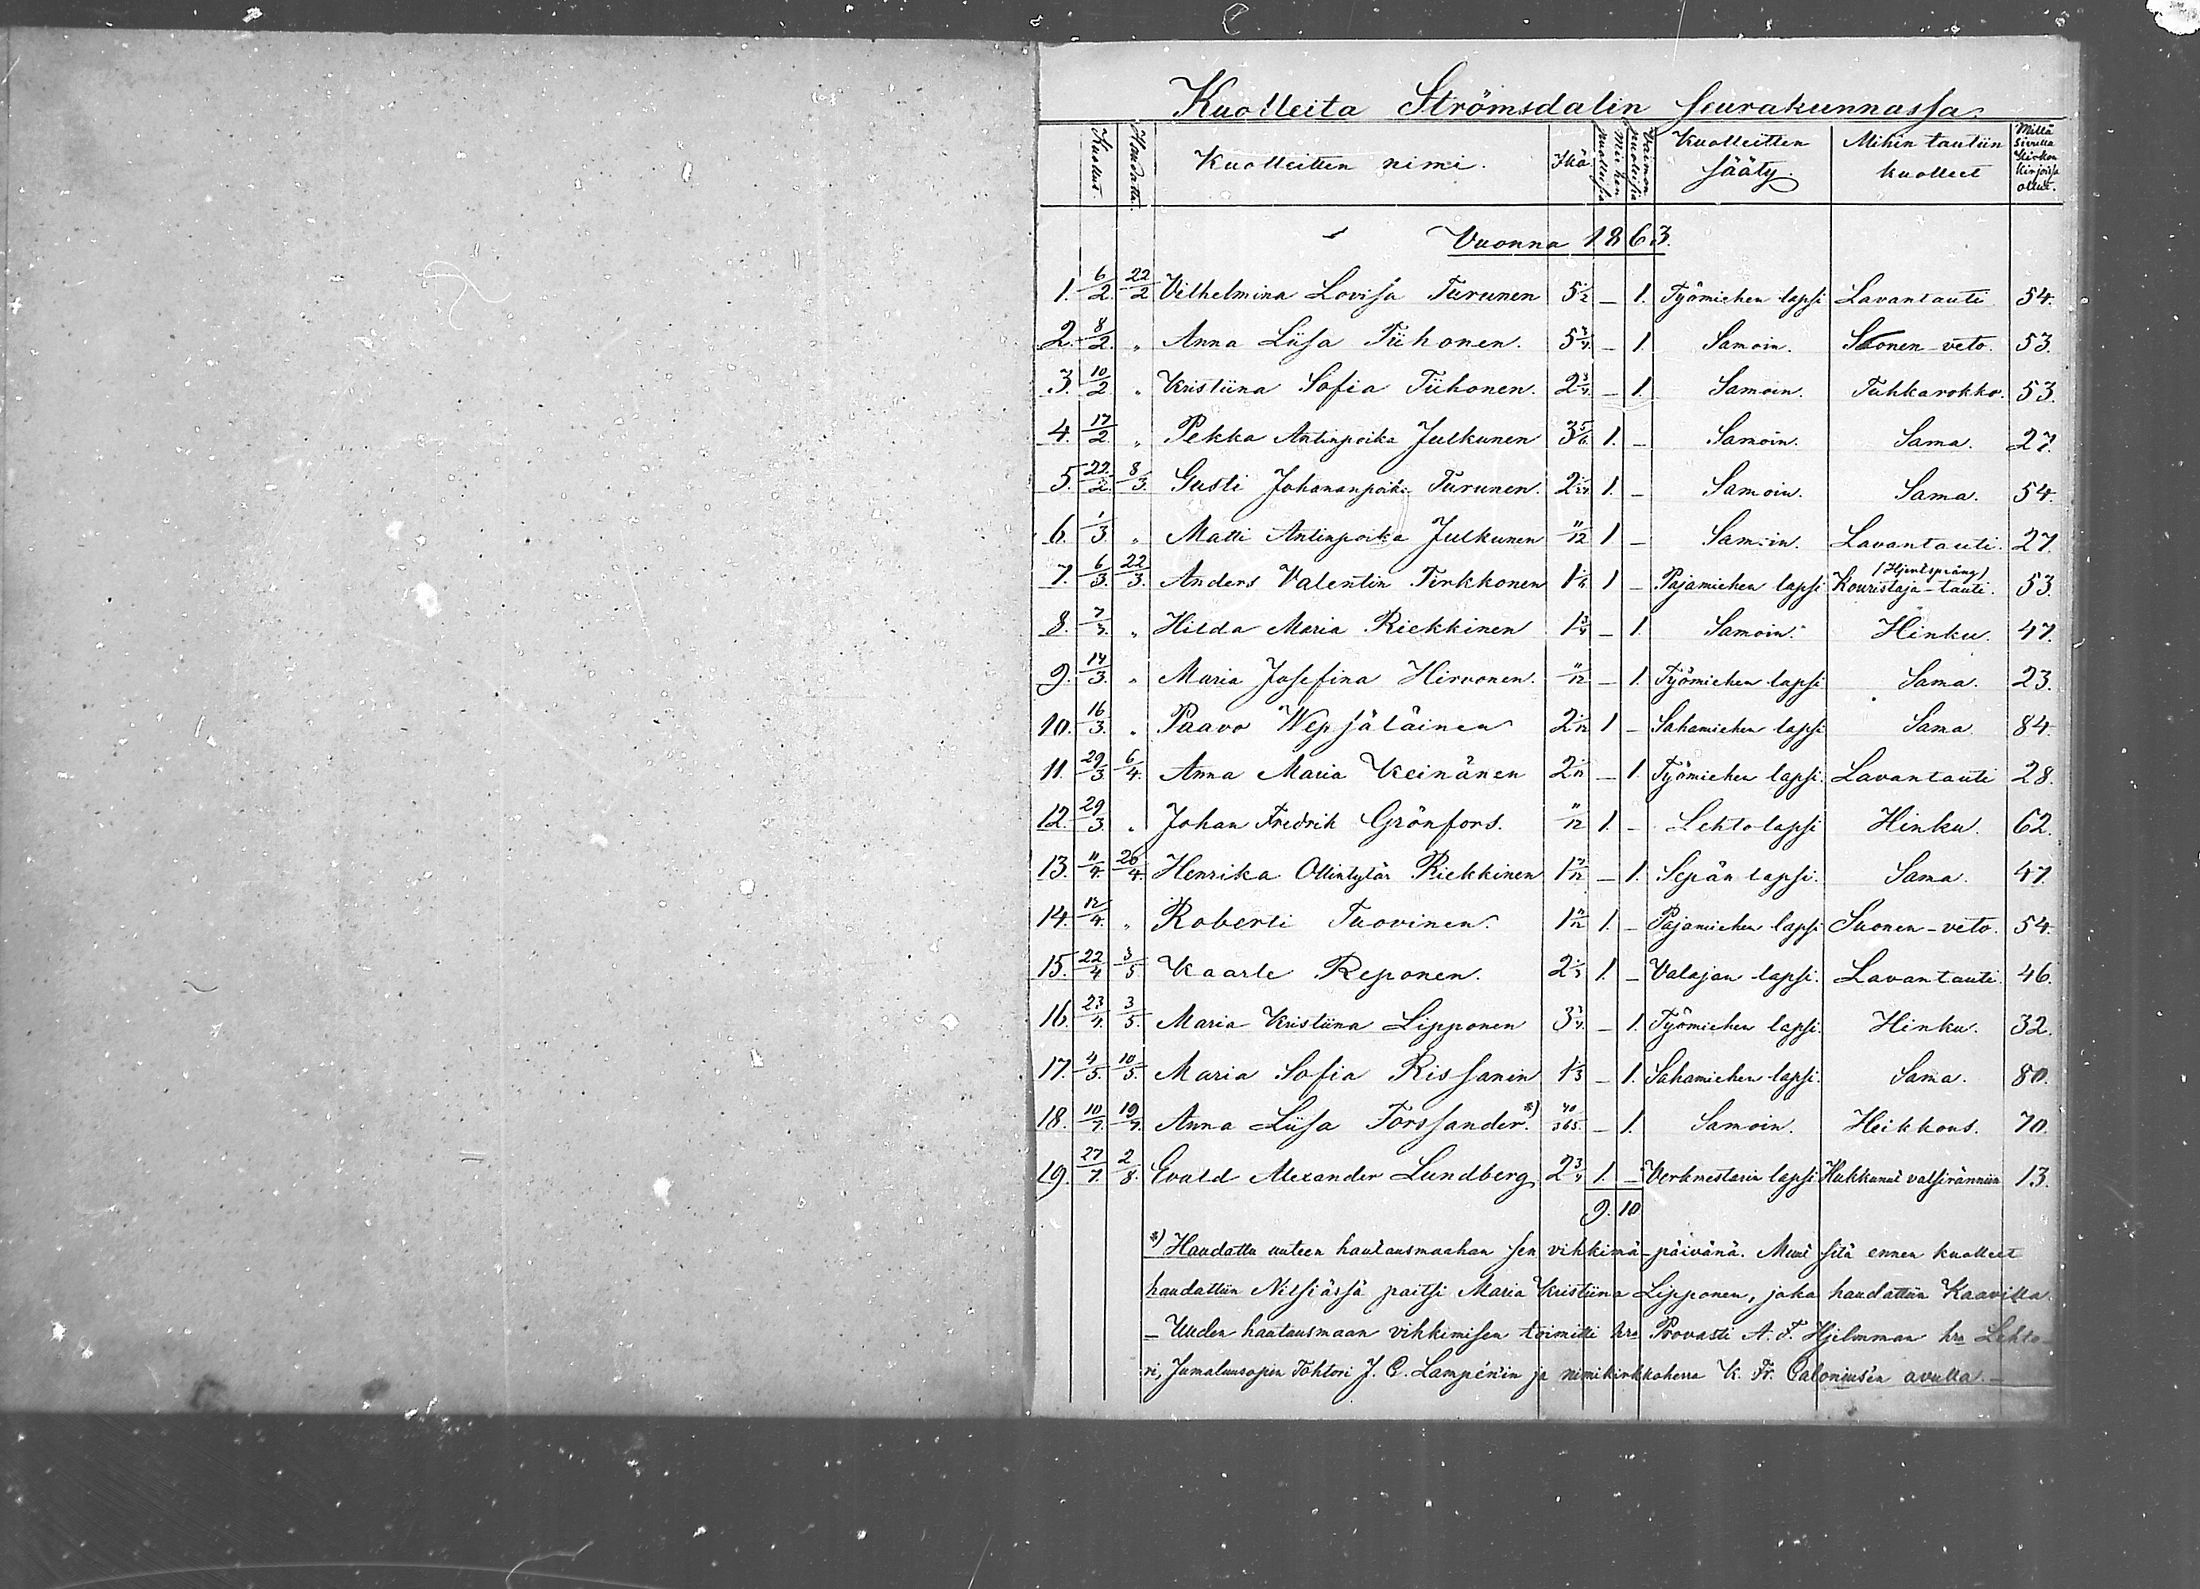 Kuolleita Strömsdalin seurakunnassa.
Kuollut. Haudattu. Kuolleitten nimi. Ikä Miehen puolisia Vaimon puolisia Kuolleitten sääty. Mihin tautiin kuolleet Millä sivulla Kirkon kirjoissa olleet.
Vuonna 1863.
1. 6/2. 22/2 Vilhelmina Lovisa Turunen 5 1/2 – 1. Työmiehen lapsi Lavantauti 54.
2. 8/2. " Anna Liisa Tiihonen. 5 3/4 – 1. Samoin. Suonen-veto. 53.
3. 10/2. " Kristiina Sofia Tiihonen. 2 3/4. – 1. Samoin. Tuhkarokko. 53.
4. 17/2. " Pekka Antinpoika Julkunen 3 5/6. 1. – Samoin. Sama. 27.
5. 22/2. 8/3. Gusti Johananpoika Turunen. 2 1. – Samoin. Sama. 54.
6. 1/3 " Matti Antinpoika Julkunen 11/12 1 – Samoin. Lavantauti. 27.
7. 6/3. 22/3. Anders Valentin Tirkkonen 1 1/6 1 – Pajamiehen lapsi Kouristaja-tauti. (Hjertsprång) 53.
8. 7/3. " Hilda Maria Riekkinen 1 3/4 – 1. Samoin. Hinku. 47.
9. 14/3. " Maria Josefina Hirvonen. 11/12 – 1. Työmiehen lapsi Sama. 23.
10. 16/3. " Paavo Wepsäläinen 2 1/12 1 – Sahamiehen lapsi Sama 84.
11. 29/3 6/4. Anna Maria Keinänen 2 1/12 – 1. Työmiehen lapsi. Lavantauti 28.
12. 29/3. " Johan Fredrik Grönfors. 11/12 1. – Lehtolapsi Hinku. 62.
13. 11/4. 26/4. Henrika Ollintytär Riekkinen 1 7/12 – 1. Sepän lapsi. Sama. 47.
14. 12/4. " Roberti Tuovinen. 1 11/12 1. – Pajamiehen lapsi Suonen-veto. 54.
15. 22/4 3/5 Kaarle Reponen. 2 1/3 1. – Valajan lapsi. Lavantauti. 46.
16. 23/4. 3/5. Maria Kristiina Lipponen 3 3/4. – 1. Työmiehen lapsi. Hinku. 32.
17. 4/5. 10/5. Maria Sofia Rissanen 1 1/3 – 1. Sahamiehen lapsi. Sama. 80.
18. 10/7. 19/7. Anna Liisa Forssander. *) 40/365 – 1. Samoin. Heikkous. 70.
19. 27/7. 2/8. Evald Alexander Lundberg 2 3/4 1. – Verkmestarin lapsi Hukkunut valssiränniin 13.
9. 10
*) Haudattu uuteen hautausmaahan sen vihkimä-päivänä. Muut sitä ennen kuolleet
haudattiin Nilsiässä paitsi Maria Kristiina Lipponen, joka haudattiin Kaavilla.
– Uuden hautausmaan vihkimisen toimitti hra Provasti A. F. Hjelmman hra Lehto-
ri, Jumaluusopin Tohtori J. E. Lampén'in ja nimikirkkoherra K. Fr. Calonius'en avulla. –